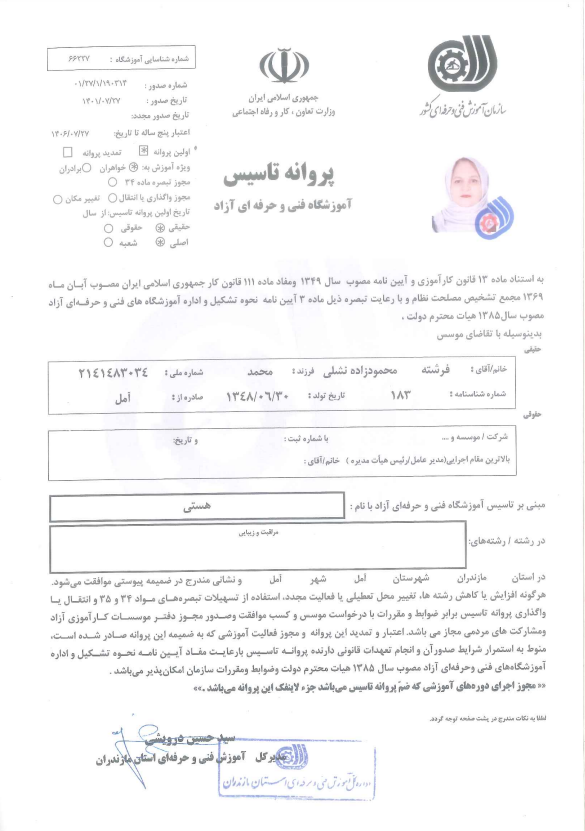 شماره شناسایی آموزشگاه : ۶۶۲۲۷
شماره صدور : ۰۱/۲۷/۱/۱۹۰۳۱۴
تاریخ صدور : ۱۴۰۱/۰۷/۲۷
تاریخ صدور مجدد:
اعتبار پنج ساله تا تاریخ: ۱۴۰۶/۰۷/۲۷
اولین پروانه تمدید پروانه
ویژه آموزش به: خواهران برادران
مجوز تبصره ماده ۳۴
مجوز واگذاری یا انتقال تغییر مکان
تاریخ اولین پروانه تاسیس: از سال
حقیقی حقوقی
اصلی شعبه
جمهوری اسلامی ایران
وزارت تعاون ، کار و رفاه اجتماعی
سازمان آموزش فنی و حرفه‌ای کشور
پروانه تاسیس
آموزشگاه فنی و حرفه ای آزاد
به استناد ماده ۱۳ قانون کارآموزی و آیین نامه مصوب سال ۱۳۴۹ ومفاد ماده ۱۱۱ قانون کار جمهوری اسلامی ایران مصوب آبان ماه
۱۳۶۹ مجمع تشخیص مصلحت نظام و با رعایت تبصره ذیل ماده ۳ آیین نامه نحوه تشکیل و اداره آموزشگاه های فنی و حرفه‌ای آزاد
مصوب سال۱۳۸۵ هیات محترم دولت ،
بدینوسیله با تقاضای موسس
حقیقی
خانم/آقای : فرشته محمودزاده نشلی فرزند : محمد شماره ملی : ۲۱۴۱۴۸۳۰۳۴
شماره شناسنامه : ۱۸۳ تاریخ تولد : ۱۳۴۸/۰۶/۳۰ صادره از : آمل
حقوقی
شرکت / موسسه و .... با شماره ثبت : و تاریخ:
بالاترین مقام اجرایی(مدیر عامل/رئیس هیأت مدیره ) خانم/آقای :
مبنی بر تاسیس آموزشگاه فنی و حرفه‌ای آزاد با نام : هستی
در رشته / رشته‌های: مراقبت و زیبایی
در استان مازندران شهرستان آمل شهر آمل و نشانی مندرج در ضمیمه پیوستی موافقت می‌شود.
هرگونه افزایش یا کاهش رشته ها، تغییر محل تعطیلی یا فعالیت مجدد، استفاده از تسهیلات تبصره‌های مواد ۳۴ و ۳۵ و انتقال یا
واگذاری پروانه تاسیس برابر ضوابط و مقررات با درخواست موسس و کسب موافقت وصدور مجوز دفتر موسسات کارآموزی آزاد
ومشارکت های مردمی مجاز می باشد. اعتبار و تمدید این پروانه و مجوز فعالیت آموزشی که به ضمیمه این پروانه صادر شده است،
منوط به استمرار شرایط صدورآن و انجام تعهدات قانونی دارنده پروانه تاسیس بارعایت مفاد آیین نامه نحوه تشکیل و اداره
آموزشگاه‌های فنی وحرفه‌ای آزاد مصوب سال ۱۳۸۵ هیات محترم دولت وضوابط ومقررات سازمان امکان‌پذیر می‌باشد .
«« مجوز اجرای دوره‌های آموزشی که ضم پروانه تاسیس می‌باشد جزء لاینفک این پروانه می‌باشد .»»
لطفا به نکات مندرج در پشت صفحه توجه گردد.
سید حسین درویشی
مدیرکل آموزش فنی و حرفه‌ای استان مازندران
اداره کل آموزش فنی و حرفه‌ای استان مازندران